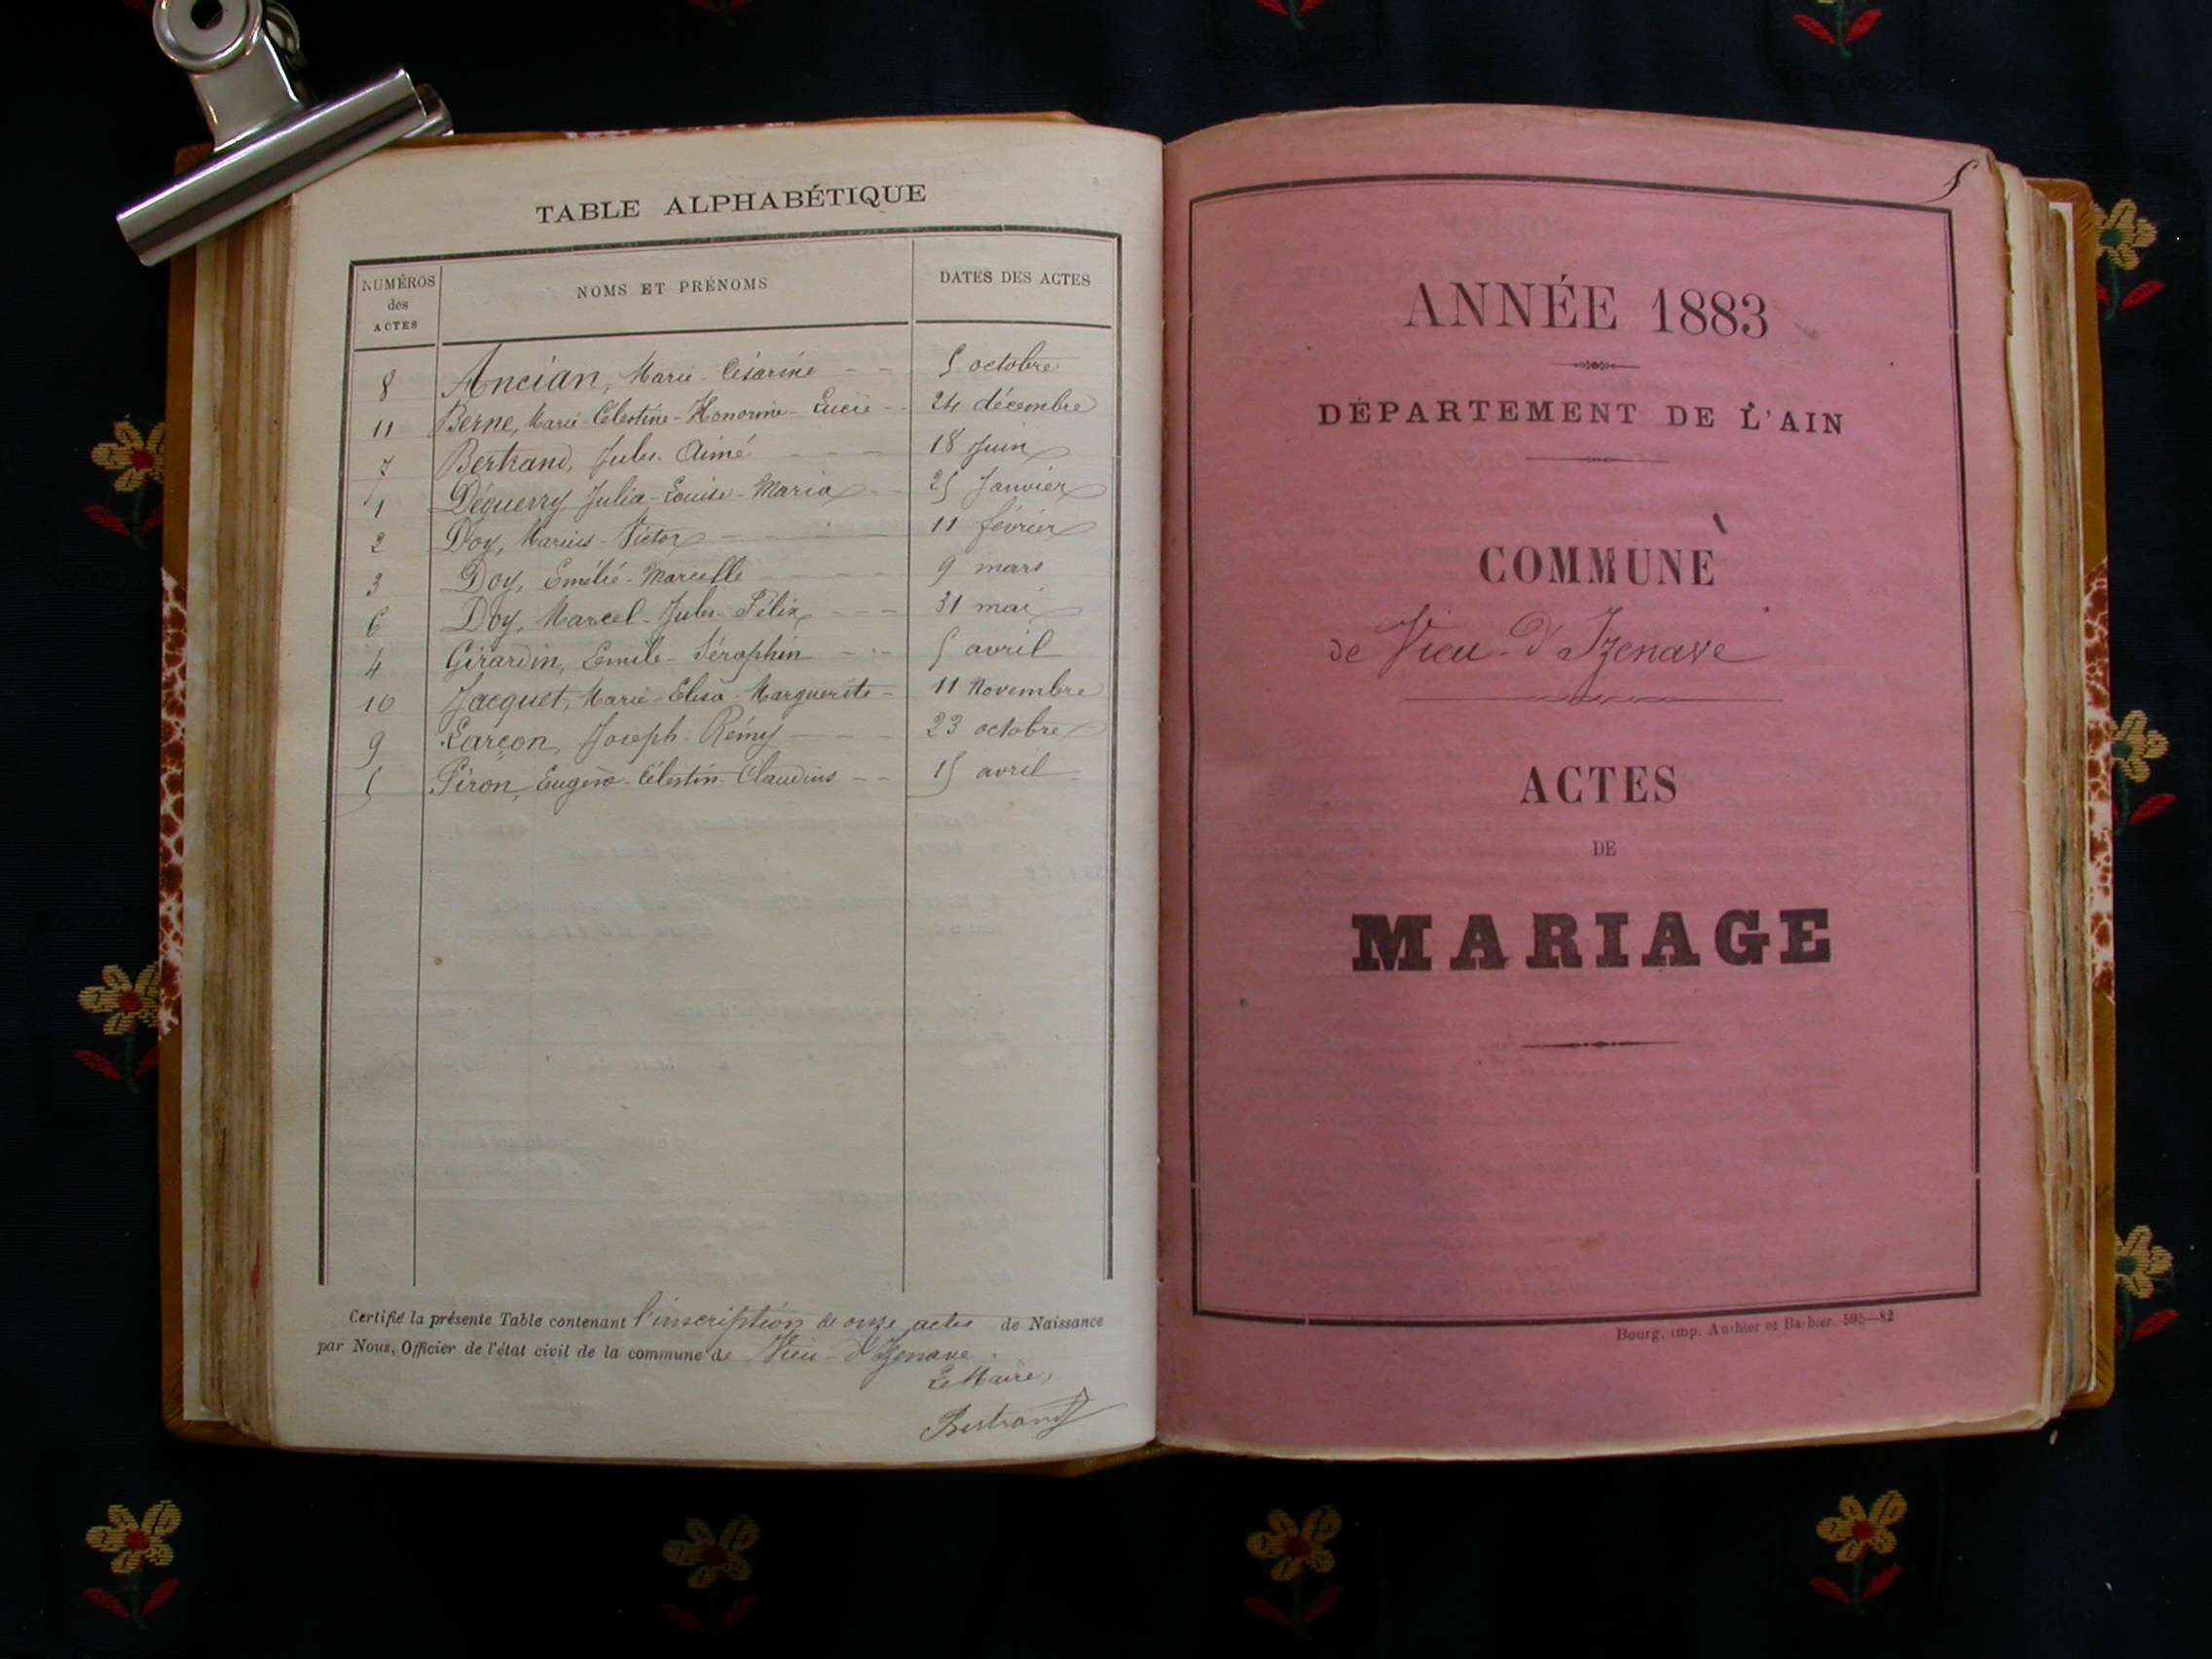 TABLE ALPHABÉTIQUE
NUMÉROS des ACTES NOMS ET PRÉNOMS DATES DES ACTES
8 Ancian, Marie-Césarine 5 octobre
11 Berne, Marie-Célestine-Honorine-Lucie 24 décembre
7 Bertrand, Jules-Aimé 18 Juin
1 Déguerry Julia-Louise-Maria 25 Janvier
2 Doy, Marius-Victor 11 février
3 Doy, Emélie-Marcelle 9 mars
6 Doy, Marcel-Jules-Félix 31 mai
4 Girardin, Emile-Séraphin 5 avril
10 Jacquet, Marie-Elisa-Marguerite 11 Novembre
9 Larçon, Joseph-Rémy 23 octobre
5 Piron, Eugène-Célestin-Claudius 15 avril
Certifié la présente Table contenant l'inscription de onze actes de Naissance
par Nous, Officier de l'état civil de la commune de Vieu-d'Izenave.
Le Maire,
Bertrand
5
ANNÉE 1883
DÉPARTEMENT DE L'AIN
COMMUNE
de Vieu-d'Izenave
ACTES
DE
MARIAGE
Bourg, imp. Authier et Barbier. 595—82